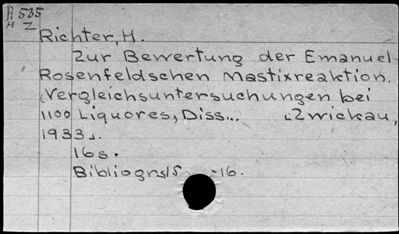 R 535
H Z
Richter, H.
Zur Bewertung der Emanuel-
Rosenfeldschen Mastixreaktion.
(Vergleichsuntersuchungen bei
1100 Liquores, Diss... Zwickau,
1933.
16s.
Bibliogr.s15 -16.